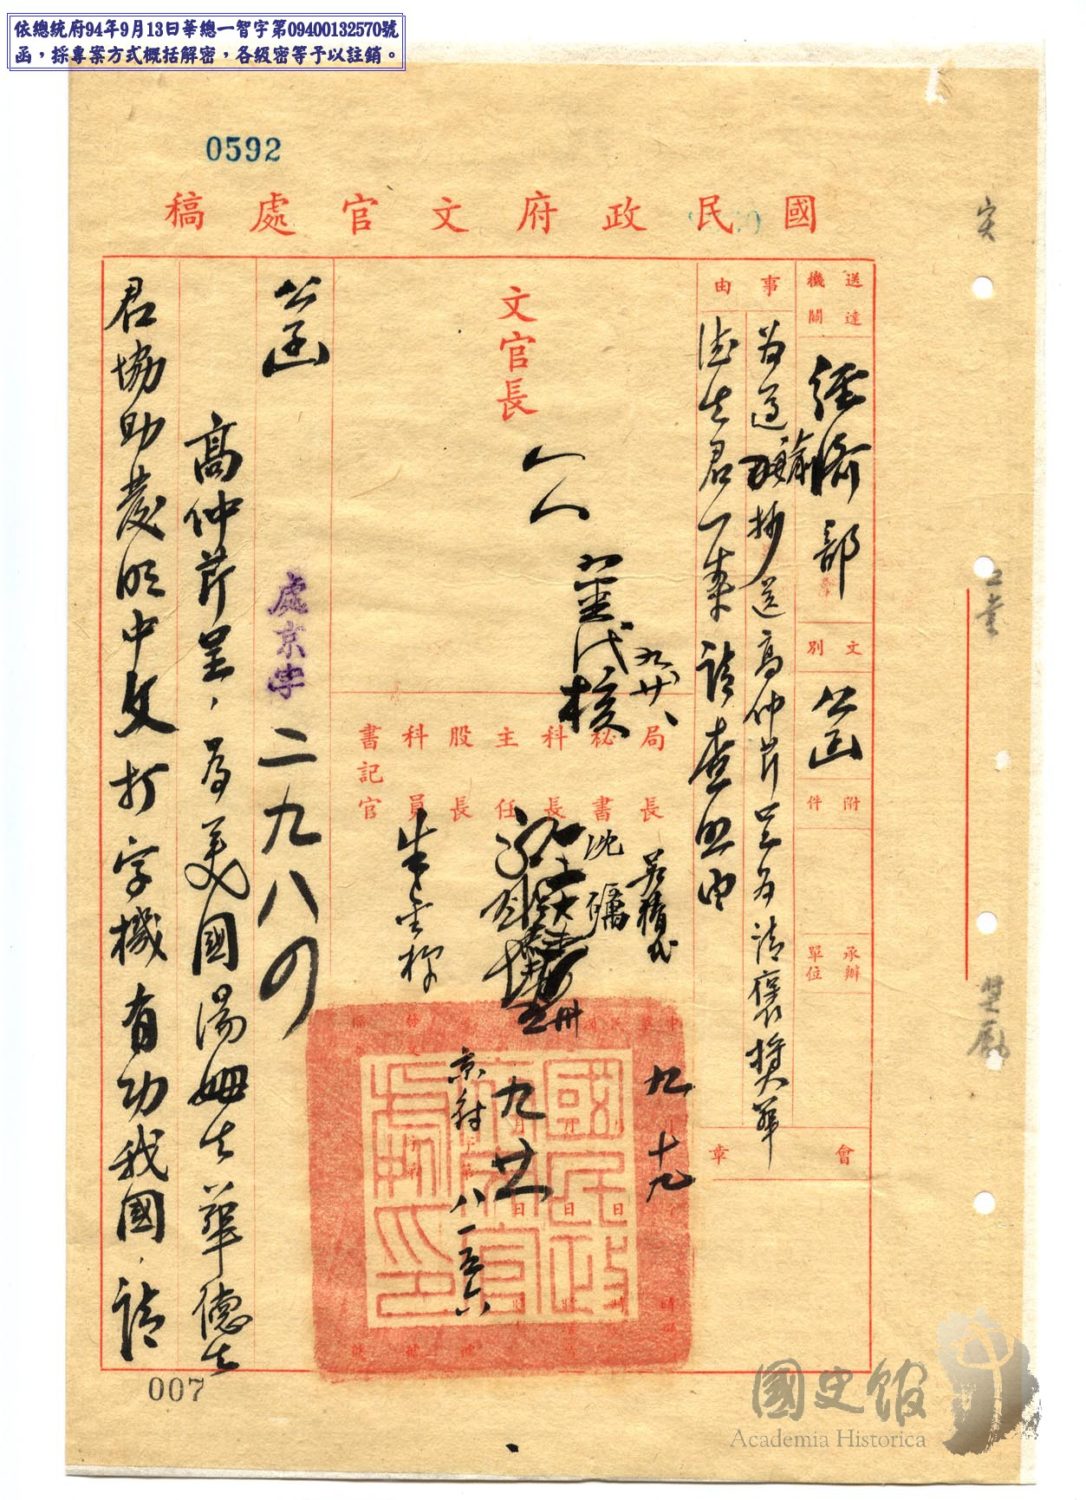 依總統府94年9月13日華總一智字第09400132570號
函，採專案方式概括解密，各級密等予以註銷。
0592
國民政府文官處稿
送達機關
經濟部
文別
公函
附件
承辦單位
事由
為遵諭抄送高仲芹呈為請褒獎華
德生君一案請查照由
會章
文官長
代核
九、廿八、
局長
秘書
科長
主任
股長
科員
書記官
沈礪
朱雲梯
九 十九
九 廿
京封 八一五六
國民政府文官處印
公函
處京字
二九八四
高仲芹呈，為美國湯姆生華德生
君協助發明中文打字機有功我國，請
007
國史館
Academia Historica